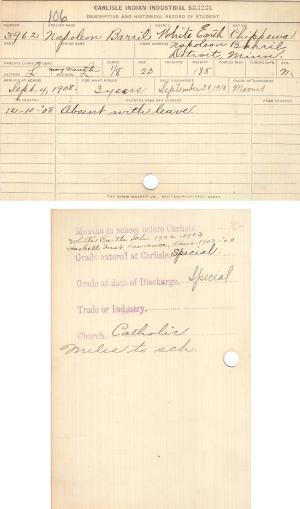 106
CARLISLE INDIAN INDUSTRIAL SCHOOL
DESCRIPTIVE AND HISTORICAL RECORD OF STUDENT
NUMBER ENGLISH NAME AGENCY NATION
3962 Napoleon Barril White Earth Chippewa
BAND INDIAN NAME HOME ADDRESS
Napoleon Barril,
Detroit, Minn.
PARENTS LIVING OR DEAD BLOOD AGE HEIGHT WEIGHT FORCED INSP. FORCED EXPR. SEX
FATHER L MOTHER L 1/8 23 185 M.
ARRIVED AT SCHOOL FOR WHAT PERIOD DATE DISCHARGED CAUSE OF DISCHARGE
Sept. 4, 1908. 3 years September 1910
TO COUNTRY PATRONS NAME AND ADDRESS FROM COUNTRY
12-10-'08 Absent with leave
Months in school before Carlisle,
White Earth 1902-1903
Haskell Inst. Lawrence, Kans.
Grade entered at Carlisle, Special
Grade at date of Discharge, Special
Trade or Industry,
Church, Catholic
Miles to sch.